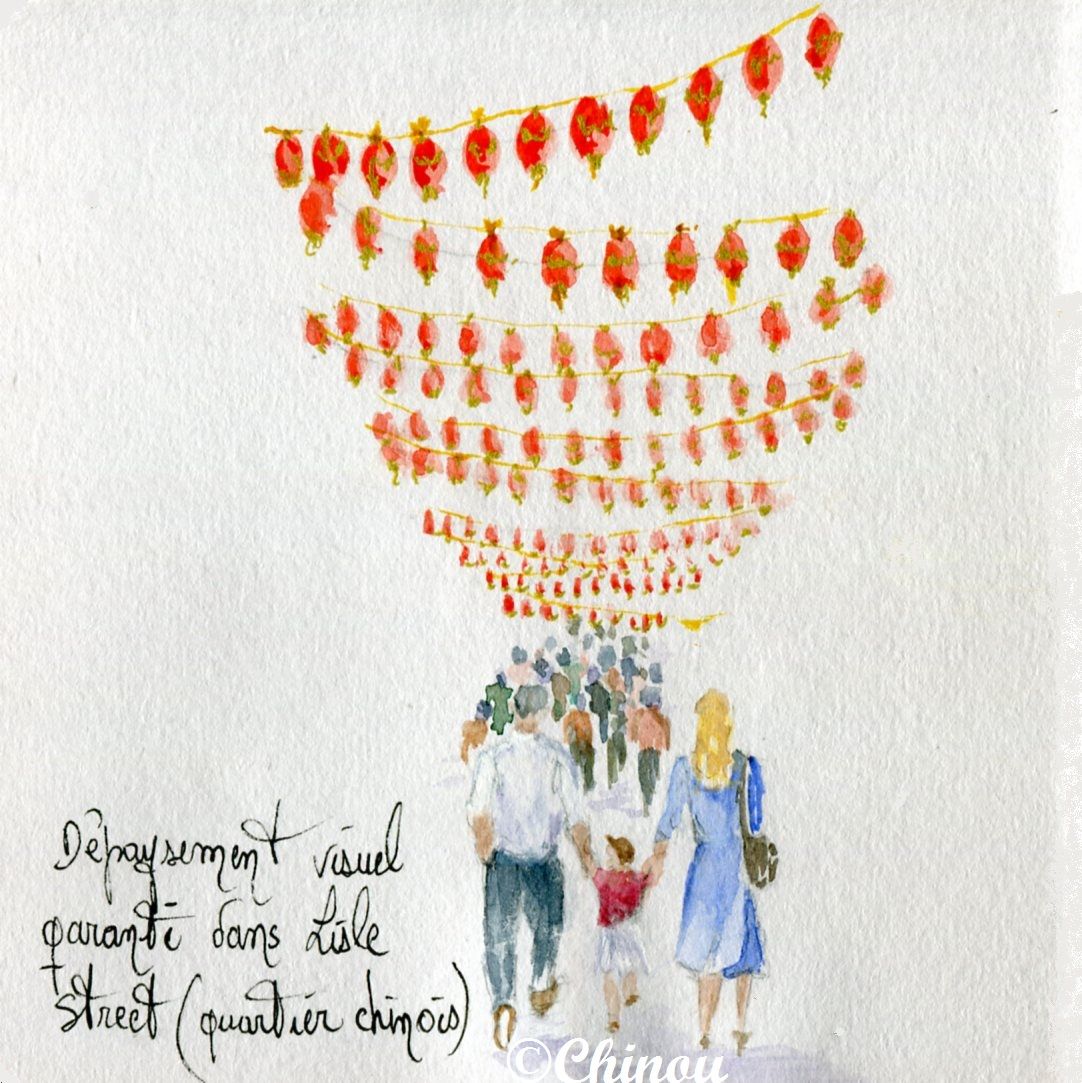 Dépaysement visuel
garanti dans Lisle
Street (quartier chinois)
©Chinou